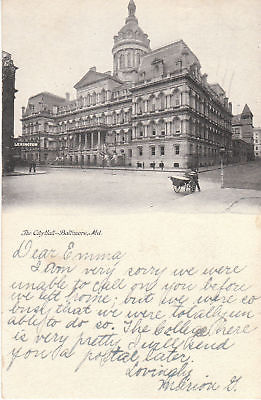 LEXINGTON
The City Hall—Baltimore, Md.
Dear Emma
I am very sorry we were
unable to call on you before
we left home; but we were so
busy that we were totally un
able to do so. The College here
is very pretty I will send
you a postal later.
Lovingly
Marion G.